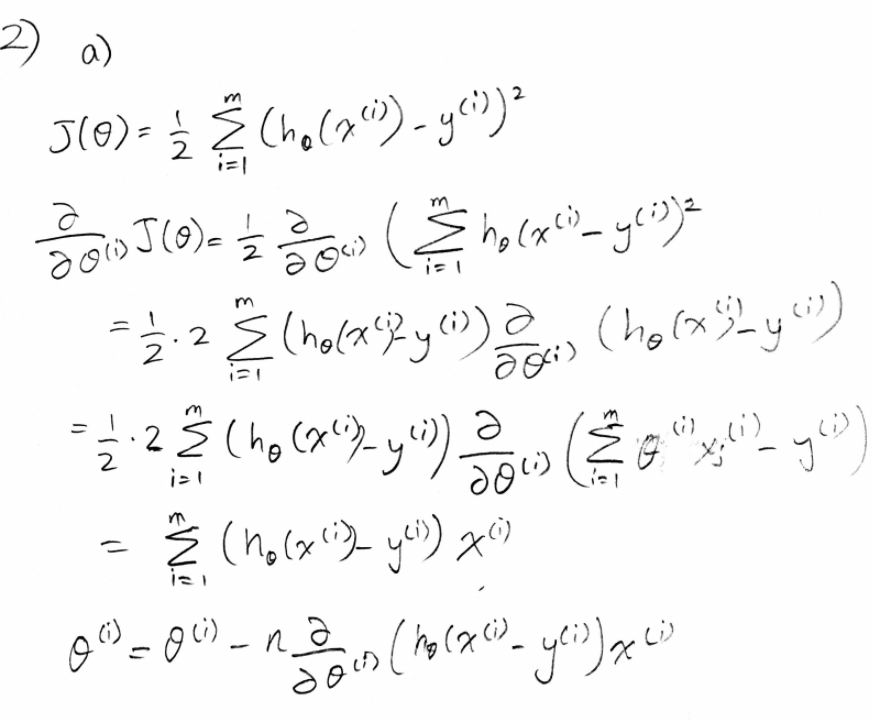 2) a)
J(θ) = 1/2 Σ_{i=1}^{m} (h_θ(x^{(i)}) - y^{(i)})²
∂/∂θ^{(i)} J(θ) = 1/2 ∂/∂θ^{(i)} ( Σ_{i=1}^{m} h_θ(x^{(i)} - y^{(i)})²
= 1/2 · 2 Σ_{i=1}^{m} (h_θ(x^{(i)}) - y^{(i)}) ∂/∂θ^{(i)} (h_θ(x^{(i)}) - y^{(i)})
= 1/2 · 2 Σ_{i=1}^{m} (h_θ(x^{(i)}) - y^{(i)}) ∂/∂θ^{(i)} ( Σ_{i=1}^{m} θ^{(i)} x_j^{(i)} - y^{(i)})
= Σ_{i=1}^{m} (h_θ(x^{(i)}) - y^{(i)}) x^{(i)}
θ^{(i)} = θ^{(i)} - n ∂/∂θ^{(i)} (h_θ(x^{(i)} - y^{(i)}) x^{(i)}